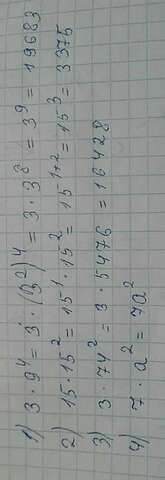 1) 3 · 9⁴ = 3 · (3²)⁴ = 3 · 3⁸ = 3⁹ = 19683
2) 15 · 15² = 15¹ · 15² = 15¹⁺² = 15³ = 3375
3) 3 · 74² = 3 · 5476 = 16428
4) 7 · a² = 7a²